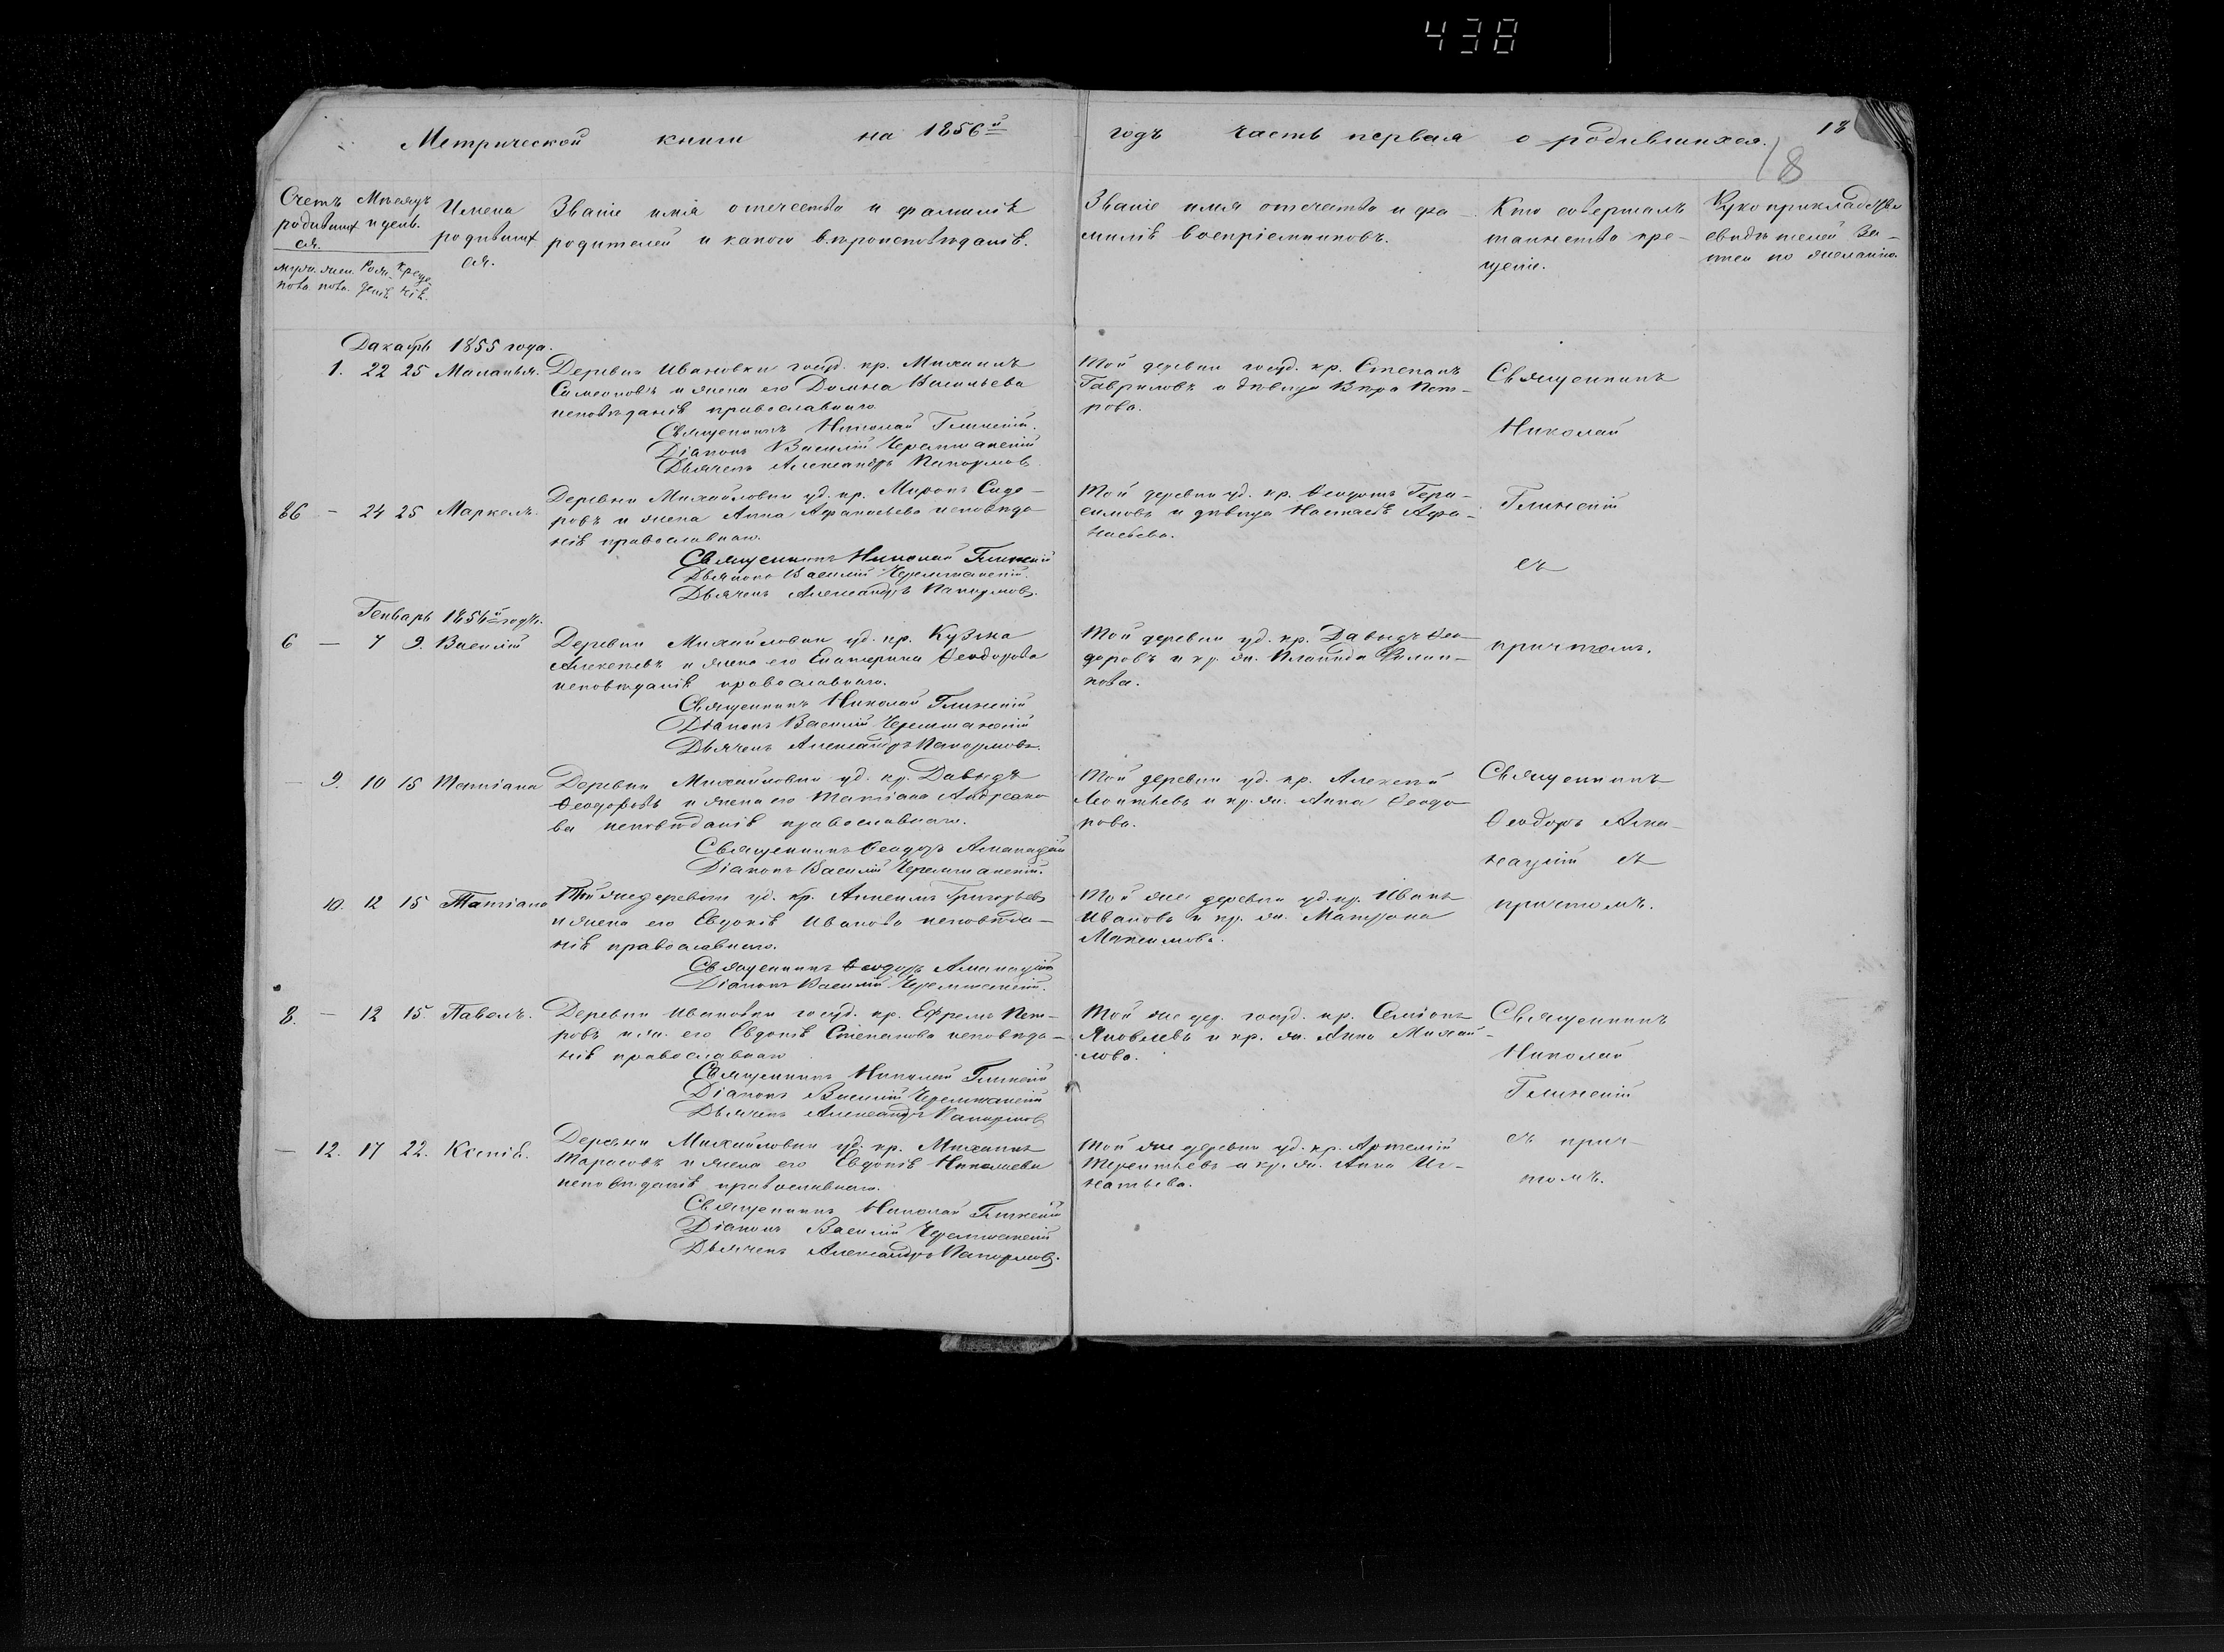 438
Метрической книги на 1856й
годъ часть первая о родившихся.
18
18
Счетъ родившихся.
Мѣсяцъ и день.
Имена родившихся.
Званіе имя отечество и фамилія
родителей и какого вѣроисповѣданія.
Званіе имя отечество и фа-
милія воспріемниковъ.
Кто совершалъ
таинство кре-
щенія.
Рукоприкладство
свидѣтелей за-
писи по желанію
Декабрь 1855 года.
1. 22 25 Маланья.
Деревни Ивановки госуд. кр. Михаилъ
Симеоновъ и жена его Домна Васильева
исповѣданія православнаго
Священникъ Николай Глинскій.
Діаконъ Василій Черемшанскій
Дьячекъ Александръ
Той деревни госуд. кр. Степанъ
Гавриловъ и дѣвица Вѣра Пет-
рова.
Священникъ
Николай
Глинскій
съ
причтомъ.
86 — 24 25 Маркелъ.
Деревни Михайловки уд. кр. Миронъ Сидо-
ровъ и жена Анна Афанасьева исповѣда-
нія православнаго.
Священникъ Николай Глинскій
Дьяконъ Василій Черемшанскій.
Дьячекъ Александръ
Той деревни уд. кр. Ѳеодотъ Гера-
симовъ и дѣвица Настасія Афа-
насьева.
Генварь 1856й года.
6 — 7 9. Василій
Деревни Михайловки уд. кр. Кузма
Алексѣевъ и жена его Екатерина Ѳеодорова
исповѣданія православнаго.
Священникъ Николай Глинскій
Діаконъ Василій Черемшанскій
Дьячекъ Александръ
Той деревни уд. кр. Давыдъ Ѳео-
доровъ и кр. ж. Филип-
пова.
— 9. 10 15 Татіана
Деревни Михайловки уд. кр. Давыдъ
Ѳеодоровъ и жена его Татіана Андреано-
ва исповѣданія православнаго.
Священникъ Ѳеодоръ
Діаконъ Василій Черемшанскій.
Той деревни уд. кр. Алексѣй
Леонтьевъ и кр. ж. Анна Ѳеодо-
рова.
Священникъ
Ѳеодоръ
съ
причтомъ.
10. 12 15 Татіана
Той же деревни уд. кр. Григорьевъ
и жена его Евдокія Иванова исповѣда-
нія православнаго.
Священникъ Ѳеодоръ
Діаконъ Василій Черемшанскій.
Той же деревни уд. кр. Иванъ
Ивановъ и кр. ж. Матрона
Максимова.
8. — 12 15. Павелъ.
Деревни Ивановки госуд. кр. Ефремъ Пет-
ровъ и ж. его Евдокія Степанова исповѣда-
нія православнаго
Священникъ Николай Глинскій
Діаконъ Василій Черемшанскій
Дьячекъ Александръ
Той же дер. госуд. кр. Семіонъ
Яковлевъ и кр. ж. Анна Михай-
лова.
Священникъ
Николай
Глинскій
съ прич-
томъ.
— 12. 17 22. Ксенія.
Деревни Михайловки уд. кр. Михаилъ
Тарасовъ и жена его Евдокія Николаева
исповѣданія православнаго.
Священникъ Николай Глинскій
Діаконъ Василій Черемшанскій
Дьячекъ Александръ
Той же деревни уд. кр. Артемій
Терентьевъ и кр. ж. Анна Иг-
натьева.